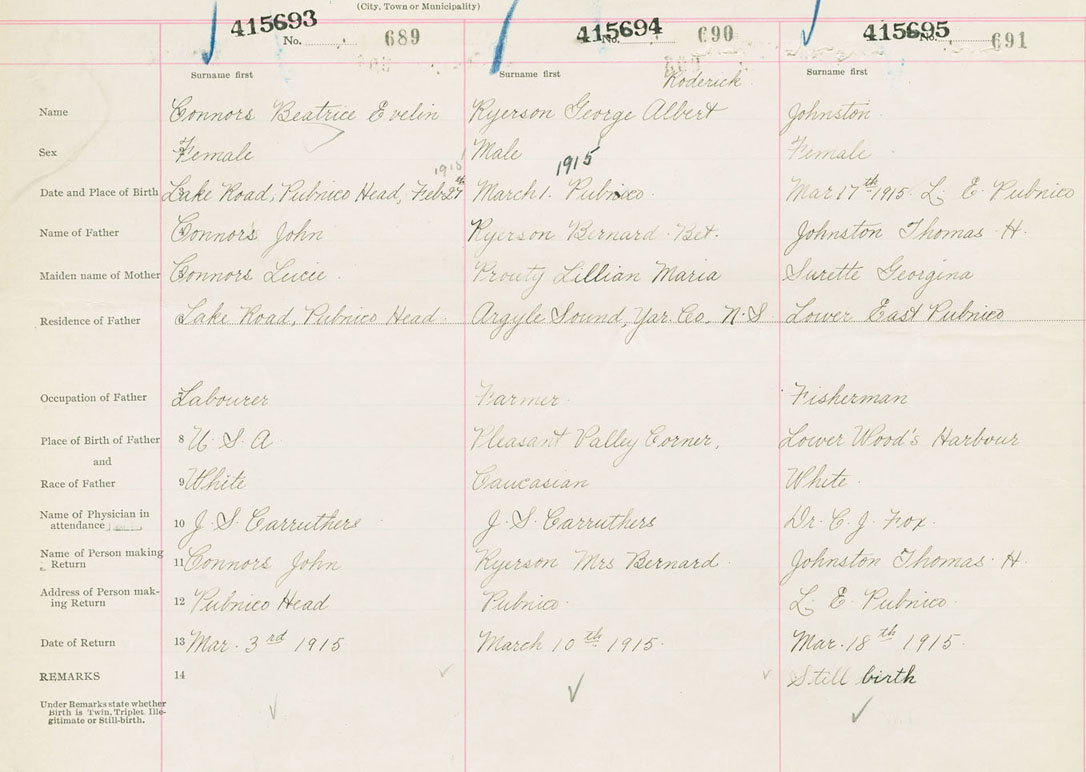 (City, Town or Municipality)
415693 415694 415695
No. 689 No. 690 No. 691
Surname first Surname first Surname first
Roderick
Name Connors Beatrice Evelin Ryerson George Albert Johnston
Sex Female Male Female
1915 1915
Date and Place of Birth Lake Road, Pubnico Head, Feb 27th March 1. Pubnico Mar 17th 1915. L. E. Pubnico
Name of Father Connors John Ryerson Bernard Johnston Thomas H.
Maiden name of Mother Connors Lucie Prouty Lillian Maria Surette Georgina
Residence of Father Lake Road, Pubnico Head Argyle Sound, Yar. Co. N.S. Lower East Pubnico
Occupation of Father Labourer Farmer Fisherman
Place of Birth of Father 8 U. S. A. Pleasant Valley Corner, Lower Wood's Harbour
and
Race of Father 9 White Caucasian White
Name of Physician in
attendance 10 J. S. Carruthers J. S. Carruthers Dr. C. J. Fox.
Name of Person making
Return 11 Connors John Ryerson Mrs Bernard Johnston Thomas H.
Address of Person mak-
ing Return 12 Pubnico Head Pubnico L. E. Pubnico
Date of Return 13 Mar. 3rd 1915 March 10th 1915. Mar. 18th 1915.
REMARKS 14 Still birth
Under Remarks state whether
Birth is Twin, Triplet, Ille-
gitimate or Still-birth.